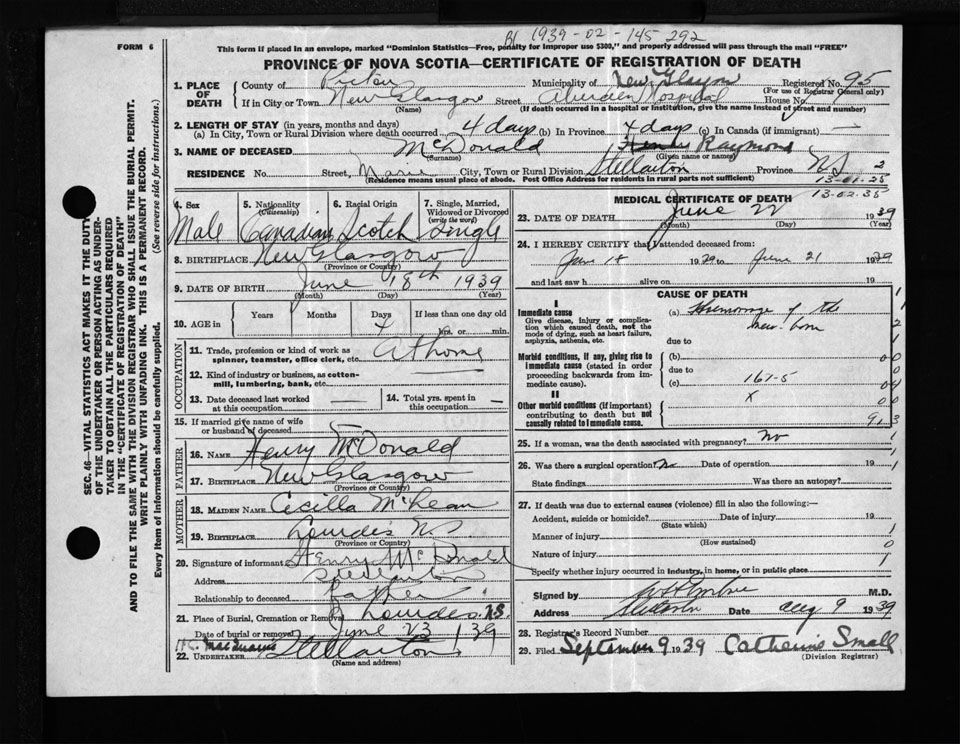 B1 1939-02-145292
FORM 6
This form if placed in an envelope, marked "Dominion Statistics—Free, penalty for improper use $300," and properly addressed will pass through the mail "FREE"
PROVINCE OF NOVA SCOTIA—CERTIFICATE OF REGISTRATION OF DEATH
1. PLACE OF DEATH
County of Pictou Municipality of New Glasgow Registered No. 95
(For use of Registrar General only)
If in City or Town New Glasgow Street Aberdeen Hospital House No.
(Name) (If death occurred in a hospital or institution, give the name instead of street and number)
2. LENGTH OF STAY (in years, months and days)
(a) In City, Town or Rural Division where death occurred 4 days (b) In Province 4 days (c) In Canada (if immigrant) —
3. NAME OF DECEASED McDonald Henry Raymond
(Surname) (Given name or names)
RESIDENCE No. Street, City, Town or Rural Division Stellarton Province N.S. 2
(Residence means usual place of abode. Post Office Address for residents in rural parts not sufficient)
13-01-25
13-02-35
4. Sex Male
5. Nationality (Citizenship) Canadian
6. Racial Origin Scotch
7. Single, Married, Widowed or Divorced (write the word) Single
8. BIRTHPLACE New Glasgow
(Province or Country)
9. DATE OF BIRTH June 18th 1939
(Month) (Day) (Year)
10. AGE in Years Months Days 4 If less than one day
hrs. or min.
OCCUPATION
11. Trade, profession or kind of work as spinner, teamster, office clerk, etc. at home
12. Kind of industry or business, as cotton-mill, lumbering, bank, etc.
13. Date deceased last worked at this occupation —
14. Total yrs. spent in this occupation —
15. If married give name of wife or husband of deceased
FATHER
16. NAME Henry McDonald
17. BIRTHPLACE New Glasgow
(Province or Country)
MOTHER
18. MAIDEN NAME Cecilla McLean
19. BIRTHPLACE Lourdes N.S.
(Province or Country)
20. Signature of informant Henry McDonald
Address Stellarton
Relationship to deceased Father
21. Place of Burial, Cremation or Removal Lourdes N.S.
Date of burial or removal June 23 1939
22. UNDERTAKER Stellarton
(Name and address)
MEDICAL CERTIFICATE OF DEATH
23. DATE OF DEATH June 22 1939
(Month) (Day) (Year)
24. I HEREBY CERTIFY that I attended deceased from:
June 18 1939 to June 21 1939
and last saw h alive on 19
CAUSE OF DEATH
I
Immediate cause
Give disease, injury or complication which caused death, not the mode of dying, such as heart failure, asphyxia, asthenia, etc.
(a) Hemorrage of the new born
due to
Morbid conditions, if any, giving rise to immediate cause (stated in order proceeding backwards from immediate cause).
(b)
due to
(c) 167-5
II
Other morbid conditions (if important) contributing to death but not causally related to immediate cause.
x
25. If a woman, was the death associated with pregnancy? No
26. Was there a surgical operation? No Date of operation 19
State findings Was there an autopsy?
27. If death was due to external causes (violence) fill in also the following:—
Accident, suicide or homicide? Date of injury 19
(State which)
Manner of injury
(How sustained)
Nature of injury
Specify whether injury occurred in industry, in home, or in public place
Signed by M.D.
Address Date Aug 9 1939
28. Registrar's Record Number
29. Filed September 9 1939 Catherine Small
(Division Registrar)
SEC. 46—VITAL STATISTICS ACT MAKES IT THE DUTY OF THE UNDERTAKER OR PERSON ACTING AS UNDERTAKER TO OBTAIN ALL THE PARTICULARS REQUIRED IN THE "CERTIFICATE OF REGISTRATION OF DEATH" AND TO FILE THE SAME WITH THE DIVISION REGISTRAR WHO SHALL ISSUE THE BURIAL PERMIT.
WRITE PLAINLY WITH UNFADING INK. THIS IS A PERMANENT RECORD.
Every item of Information should be carefully supplied. (See reverse side for instructions.)